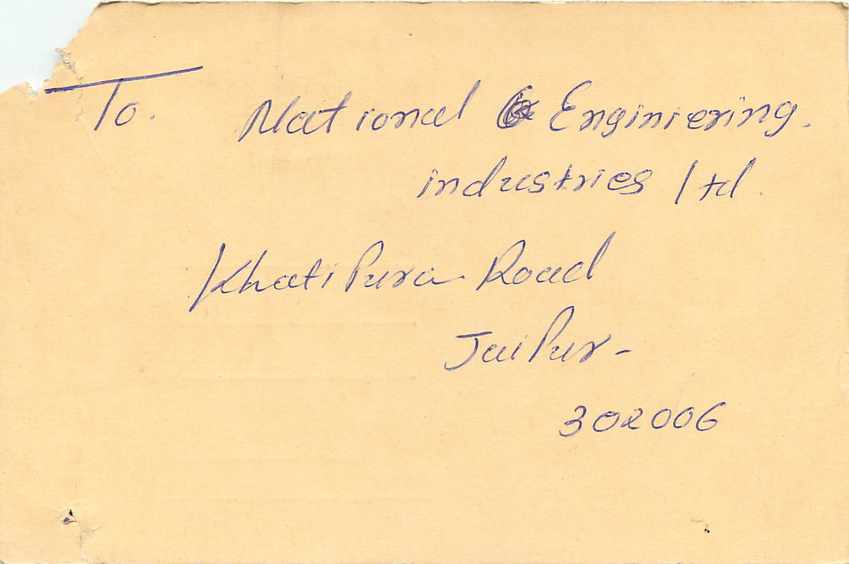 To.
National Enginiering.
industries Ltd.
Khatipura Road
Jaipur-
302006